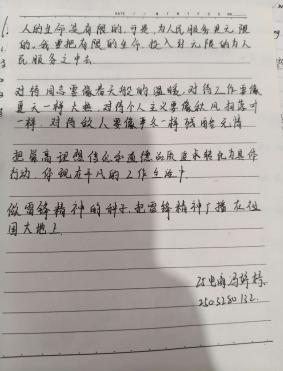 人的生命是有限的,可是,为人民服务是无限
的,我要把有限的生命,投入到无限的为人
民服务之中去
对待同志要像春天般的温暖,对待工作要像
夏天一样火热,对待个人主义要像秋风扫落叶
一样,对待敌人要像严冬一样残酷无情
把崇高理想信念和道德品质追求转化为具体
行动,体现在平凡的工作生活中
做雷锋精神的种子,把雷锋精神广播在祖
国大地上
25电商
2503280132.